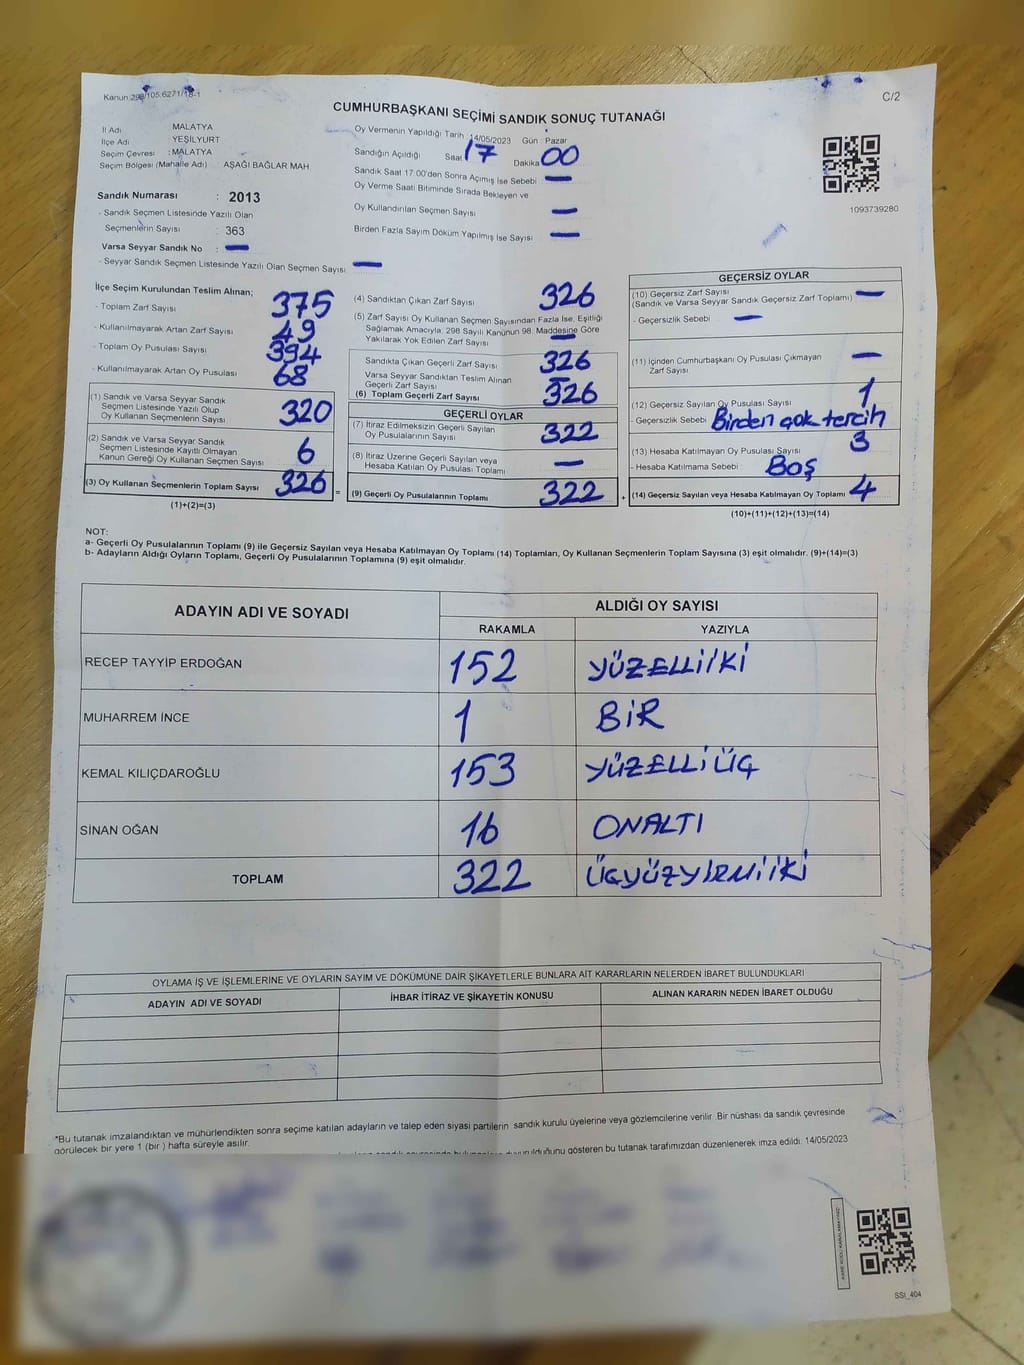 Kanun:298/105;6271/18-1
C/2
CUMHURBAŞKANI SEÇİMİ SANDIK SONUÇ TUTANAĞI
İl Adı MALATYA
İlçe Adı YEŞİLYURT
Seçim Çevresi : MALATYA
Seçim Bölgesi (Mahalle Adı) : AŞAĞI BAĞLAR MAH.
Sandık Numarası : 2013
- Sandık Seçmen Listesinde Yazılı Olan
Seçmenlerin Sayısı : 363
Varsa Seyyar Sandık No : —
- Seyyar Sandık Seçmen Listesinde Yazılı Olan Seçmen Sayısı —
Oy Vermenin Yapıldığı Tarih 14/05/2023 Gün : Pazar
Sandığın Açıldığı Saat 17 Dakika 00
Sandık Saat 17:00'den Sonra Açımış İse Sebebi —
Oy Verme Saati Bitiminde Sırada Bekleyen ve
Oy Kullandırılan Seçmen Sayısı —
Birden Fazla Sayım Döküm Yapılmış İse Sayısı —
1093739280
İlçe Seçim Kurulundan Teslim Alınan;
- Toplam Zarf Sayısı 375
- Kullanılmayarak Artan Zarf Sayısı 49
- Toplam Oy Pusulası Sayısı 394
- Kullanılmayarak Artan Oy Pusulası 68
(1) Sandık ve Varsa Seyyar Sandık
Seçmen Listesinde Yazılı Olup
Oy Kullanan Seçmenlerin Sayısı 320
(2) Sandık ve Varsa Seyyar Sandık
Seçmen Listesinde Kayıtlı Olmayan
Kanun Gereği Oy Kullanan Seçmen Sayısı 6
(3) Oy Kullanan Seçmenlerin Toplam Sayısı 326 =
(1)+(2)=(3)
(4) Sandıktan Çıkan Zarf Sayısı 326
(5) Zarf Sayısı Oy Kullanan Seçmen Sayısından Fazla İse, Eşitliği
Sağlamak Amacıyla, 298 Sayılı Kanunun 98. Maddesine Göre
Yakılarak Yok Edilen Zarf Sayısı —
Sandıkta Çıkan Geçerli Zarf Sayısı 326
Varsa Seyyar Sandıktan Teslim Alınan
Geçerli Zarf Sayısı —
(6) Toplam Geçerli Zarf Sayısı 326
GEÇERLİ OYLAR
(7) İtiraz Edilmeksizin Geçerli Sayılan
Oy Pusulalarının Sayısı 322
(8) İtiraz Üzerine Geçerli Sayılan veya
Hesaba Katılan Oy Pusulası Toplamı —
(9) Geçerli Oy Pusulalarının Toplamı 322 +
GEÇERSİZ OYLAR
(10) Geçersiz Zarf Sayısı
(Sandık ve Varsa Seyyar Sandık Geçersiz Zarf Toplamı) —
- Geçersizlik Sebebi —
(11) İçinden Cumhurbaşkanı Oy Pusulası Çıkmayan
Zarf Sayısı —
(12) Geçersiz Sayılan Oy Pusulası Sayısı 1
- Geçersizlik Sebebi Birden çok tercih
(13) Hesaba Katılmayan Oy Pusulası Sayısı 3
- Hesaba Katılmama Sebebi Boş
(14) Geçersiz Sayılan veya Hesaba Katılmayan Oy Toplamı 4
(10)+(11)+(12)+(13)=(14)
NOT:
a- Geçerli Oy Pusulalarının Toplamı (9) ile Geçersiz Sayılan veya Hesaba Katılmayan Oy Toplamı (14) Toplamları, Oy Kullanan Seçmenlerin Toplam Sayısına (3) eşit olmalıdır. (9)+(14)=(3)
b- Adayların Aldığı Oyların Toplamı, Geçerli Oy Pusulalarının Toplamına (9) eşit olmalıdır.
ADAYIN ADI VE SOYADI ALDIĞI OY SAYISI
RAKAMLA YAZIYLA
RECEP TAYYİP ERDOĞAN 152 YÜZELLİİKİ
MUHARREM İNCE 1 BİR
KEMAL KILIÇDAROĞLU 153 YÜZELLİÜÇ
SİNAN OĞAN 16 ONALTI
TOPLAM 322 ÜÇYÜZYİRMİİKİ
OYLAMA İŞ VE İŞLEMLERİNE VE OYLARIN SAYIM VE DÖKÜMÜNE DAİR ŞİKAYETLERLE BUNLARA AİT KARARLARIN NELERDEN İBARET BULUNDUKLARI
ADAYIN ADI VE SOYADI İHBAR İTİRAZ VE ŞİKAYETİN KONUSU ALINAN KARARIN NEDEN İBARET OLDUĞU
*Bu tutanak imzalandıktan ve mühürlendikten sonra seçime katılan adayların ve talep eden siyasi partilerin sandık kurulu üyelerine veya gözlemcilerine verilir. Bir nüshası da sandık çevresinde
görülecek bir yere 1 (bir ) hafta süreyle asılır.
gösteren bu tutanak tarafımızdan düzenlenerek imza edildi. 14/05/2023
SSI_404